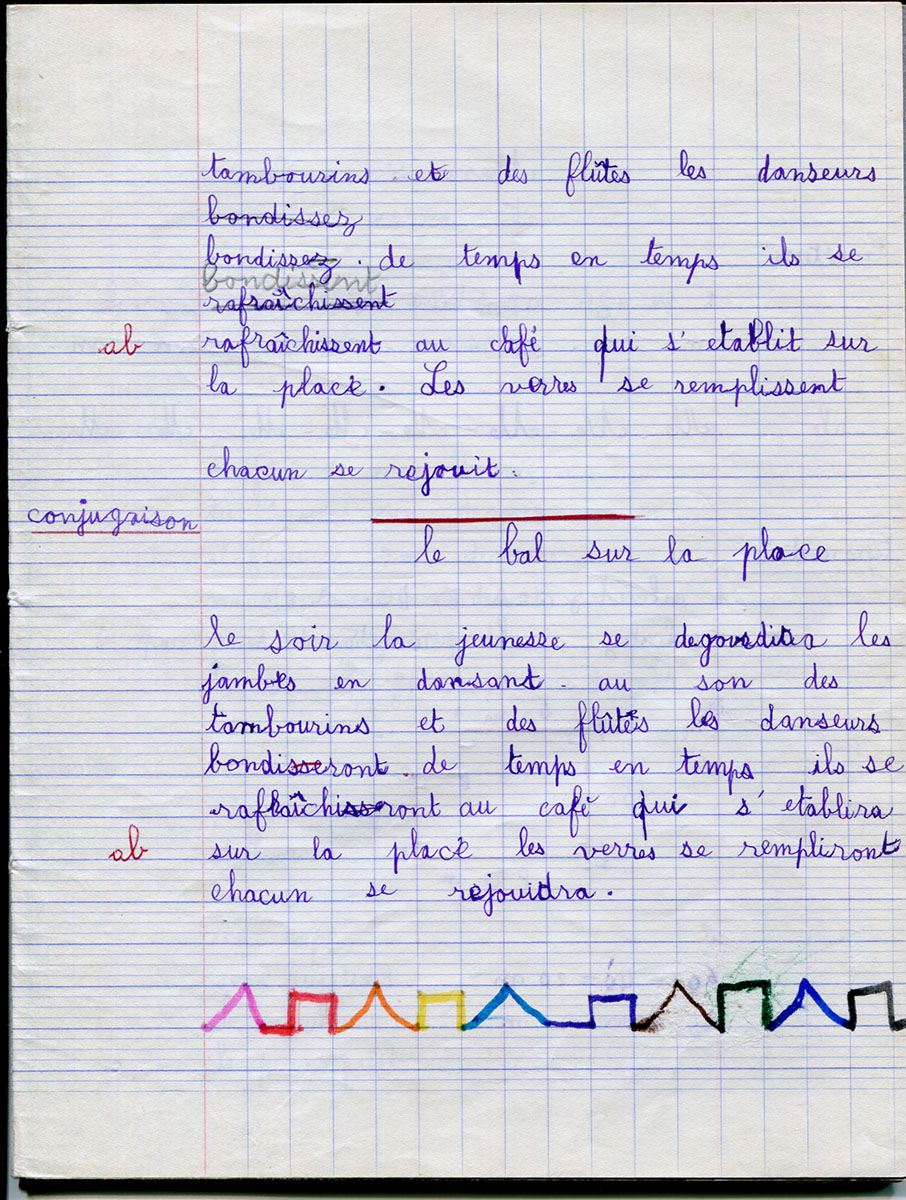 tambourins et des flûtes les danseurs
bondissez
bondissez. de temps en temps ils se
bondissent
rafraîchissent
ab rafraîchissent au café qui s'etablit sur
la place. Les verres se remplissent
chacun se rejouit.
conjugaison
le bal sur la place
le soir la jeunesse se degourdira les
jambes en dansant. au son des
tambourins et des flûtes les danseurs
bondisseront. de temps en temps ils se
rafraîchisseront au café qui s'etablira
ab sur la place les verres se rempliront
chacun se rejouidra.